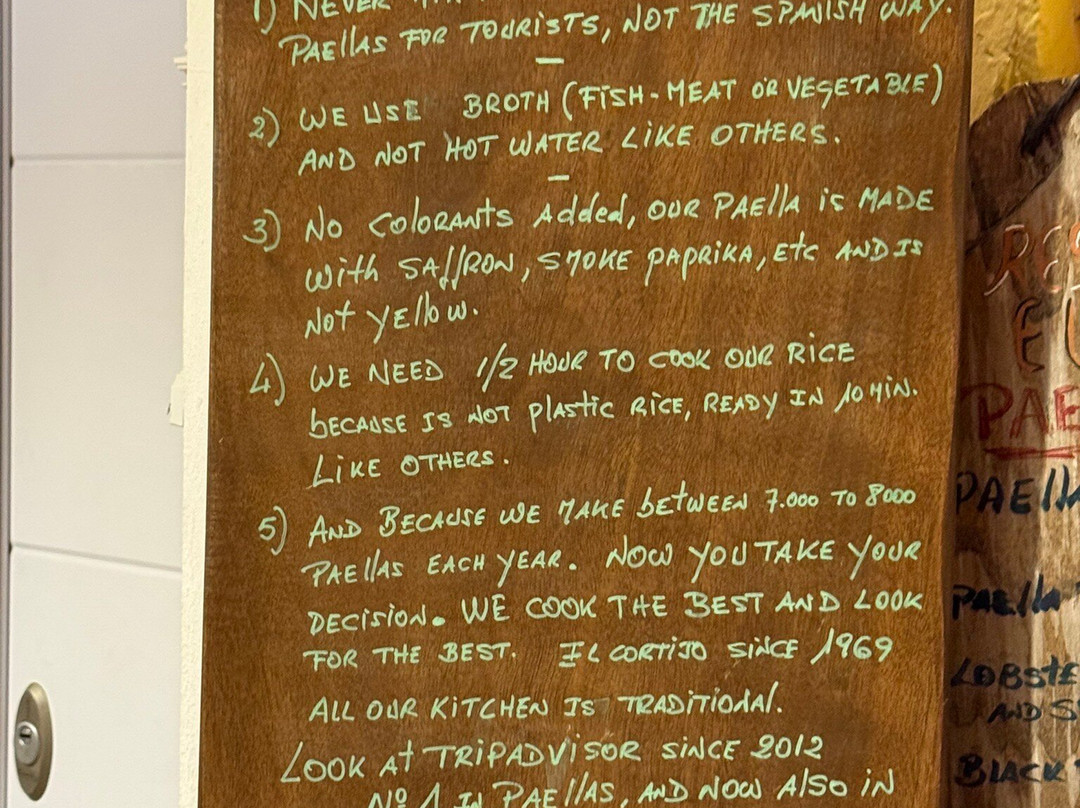 1) NEVER
PAEllAS FOR TOURISTS, NOT THE SPANISH WAY.
2) WE USE BROTH (FISH-MEAT OR VEGETABLE)
AND NOT HOT WATER LIKE OTHERS.
3) NO COLORANTS Added, OUR PAEllA is MADE
With SAffRON, SMOKE PAPRIKA, Etc AND IS
Not YEllow.
4) WE NEED 1/2 HOUR TO COOK OUR RICE
bECAUSE IS NOT plastic RICE, READY IN 10 MIN.
LIKE OTHERS.
5) AND BECAUSE WE MAKE bETWEEN 7.000 TO 8000
PAEllAS EACH YEAR. NOW YOU TAKE YOUR
DECISION. WE COOK THE BEST AND LOOK
FOR THE BEST. EL CORTIJO SINCE 1969
ALL OUR KITCHEN IS TRADITIONAL.
LOOK At TRIPADVISOR SINCE 2012
Nº 1 IN PAEllAS, AND NOW AlSO IN
PAE
PAEllA
PAEllA
LOBStE
AND S
BLACK